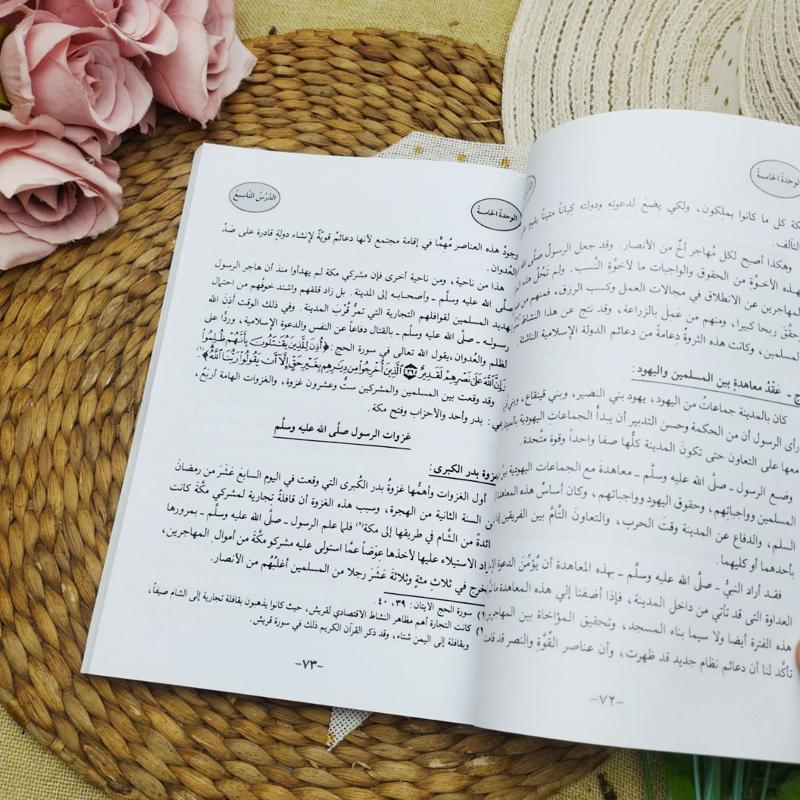 الوحدة الخامسة
ـكة كل ما كانوا يملكون، ولكي يضعَ لدعوته ودولته كياناً متيناً يقوم
التآلف.
وهكذا أصبح لكل مُهاجر أخٌ من الأنصار. وقد جعل الرسولُ صلَّى
لهذه الأخوّة من الحقوق والواجبات ما لأخوَّة النَّسب. ولم تَحُلْ هذه
المهاجرين عن الانطلاق في مجالات العمل وكسب الرزق، فمنهم من
حقَّق ربحا كبيرا، ومنهم من عَمِلَ بالزراعة، وقد نتج عن هذا النشاط
المسلمين، وكانت هذه الثروة دعامةً من دعائم الدولة الإسلامية الناشئة.
ج - عَقْدُ معاهدةٍ بين المسلمين واليهود:
كان بالمدينة جماعاتٌ من اليهود، يهود بني النضير، وبني قينقاع، وبني
رأى الرسول أن من الحكمة وحسن التدبير أن يبدأ الجماعات اليهودية
معها على التعاون حتى تكونَ المدينة كلُّها صفا واحداً وقوة متَّحدة.
وضع الرسول - صلَّى الله عليه وسلَّم - معاهدةً مع الجماعات اليهودية
المسلمين وواجباتِهم، وحقوق اليهود وواجباتهم، وكان أساسُ هذه
السلم، والدفاع عن المدينة وقت الحرب، والتعاون التَّامُّ بين الفريقين
بأحدهما أو كليهما.
فقد أراد النبيُّ - صلَّى الله عليه وسلَّم - بهذه المعاهدة أن يُؤمِّنَ الدعوة
العداوة التى قد تأتي من داخل المدينة، فإذا أضفنا إلي هذه المعاهدة
هذه الفترة أيضا ولا سيما بناء المسجد، وتحقيق المؤاخاة بين المهاجرين
تأكَّد لنا أن دعائم نظام جديد قد ظهرت، وأن عناصر القُوَّةِ والنصر قد
-٧٢-
الوحدة الخامسة
الدَّرْسُ التَّاسع
وجودُ هذه العناصر مُهِمًّا في إقامة مجتمع لأنها دعائمُ قويَّةٌ لإنشاء دولةٍ قادرة على صَدِّ
العُدوان.
هذا من ناحية، ومن ناحية أخرى فإن مشركي مكة لم يهدأوا منذ أن هاجر الرسول
صلَّى الله عليه وسلَّم - وأصحابه إلى المدينة. بل زاد قلقهم واشتد خوفُهم من احتمال
تهديد المسلمين لقوافلهم التجارية التي تمرُّ قُرْبَ المدينة. وفي ذلك الوقت أَذِنَ الله
لرسوله - صلَّى الله عليه وسلَّم - بالقتال دفاعاً عن النفس والدعوة الإسلامية، وردًّا على
الظلم والعُدوان، يقول الله تعالى في سورة الحج: ﴿أُذِنَ لِلَّذِينَ يُقَٰتَلُونَ بِأَنَّهُمْ ظُلِمُوا۟
وَإِنَّ ٱللَّهَ عَلَىٰ نَصْرِهِمْ لَقَدِيرٌ ٣٩ ٱلَّذِينَ أُخْرِجُوا۟ مِن دِيَٰرِهِم بِغَيْرِ حَقٍّ إِلَّآ أَن يَقُولُوا۟ رَبُّنَا ٱللَّهُ﴾(١)
وقد وقعت بين المسلمين والمشركين ستٌ وعشرون غزوة، والغزوات الهامة أربَعٌ،
هي: بدر وأحد والأحزاب وفتح مكة.
غزوات الرسول صلَّى الله عليه وسلَّم
غزوة بدر الكبرى:
أول الغزوات وأهمُّها غزوةُ بدر الكُبرى التي وقعت في اليوم السابعَ عَشَرَ من رمضانَ
من السنة الثانية من الهجرة، وسبب هذه الغزوة أن قافلةً تجارية لمشركي مكَّةَ كانت
عائدةً من الشَّام في طريقها إلى مكة(٢) فلمَّا علم الرسول - صلَّى الله عليه وسلَّم - بمرورها
أراد الاستيلاء عليها لأخذها عِوَضاً عمَّا استولى عليه مشركو مكَّةَ من أموال المهاجرين،
فخرج في ثلاثِ مئةٍ وثلاثةَ عَشَرَ رجلا من المسلمين أغلبُهُم من الأنصار.
(١) سورة الحج الآيتان: ٣٩، ٤٠.
(٢) كانت التجارة أهم مظاهر النشاط الاقتصادي لقريش، حيث كانوا يذهبون بقافلة تجارية إلى الشام صيفاً،
وبقافلة إلى اليمن شتاء، وقد ذكر القرآن الكريم ذلك في سورة قريش.
-٧٣-